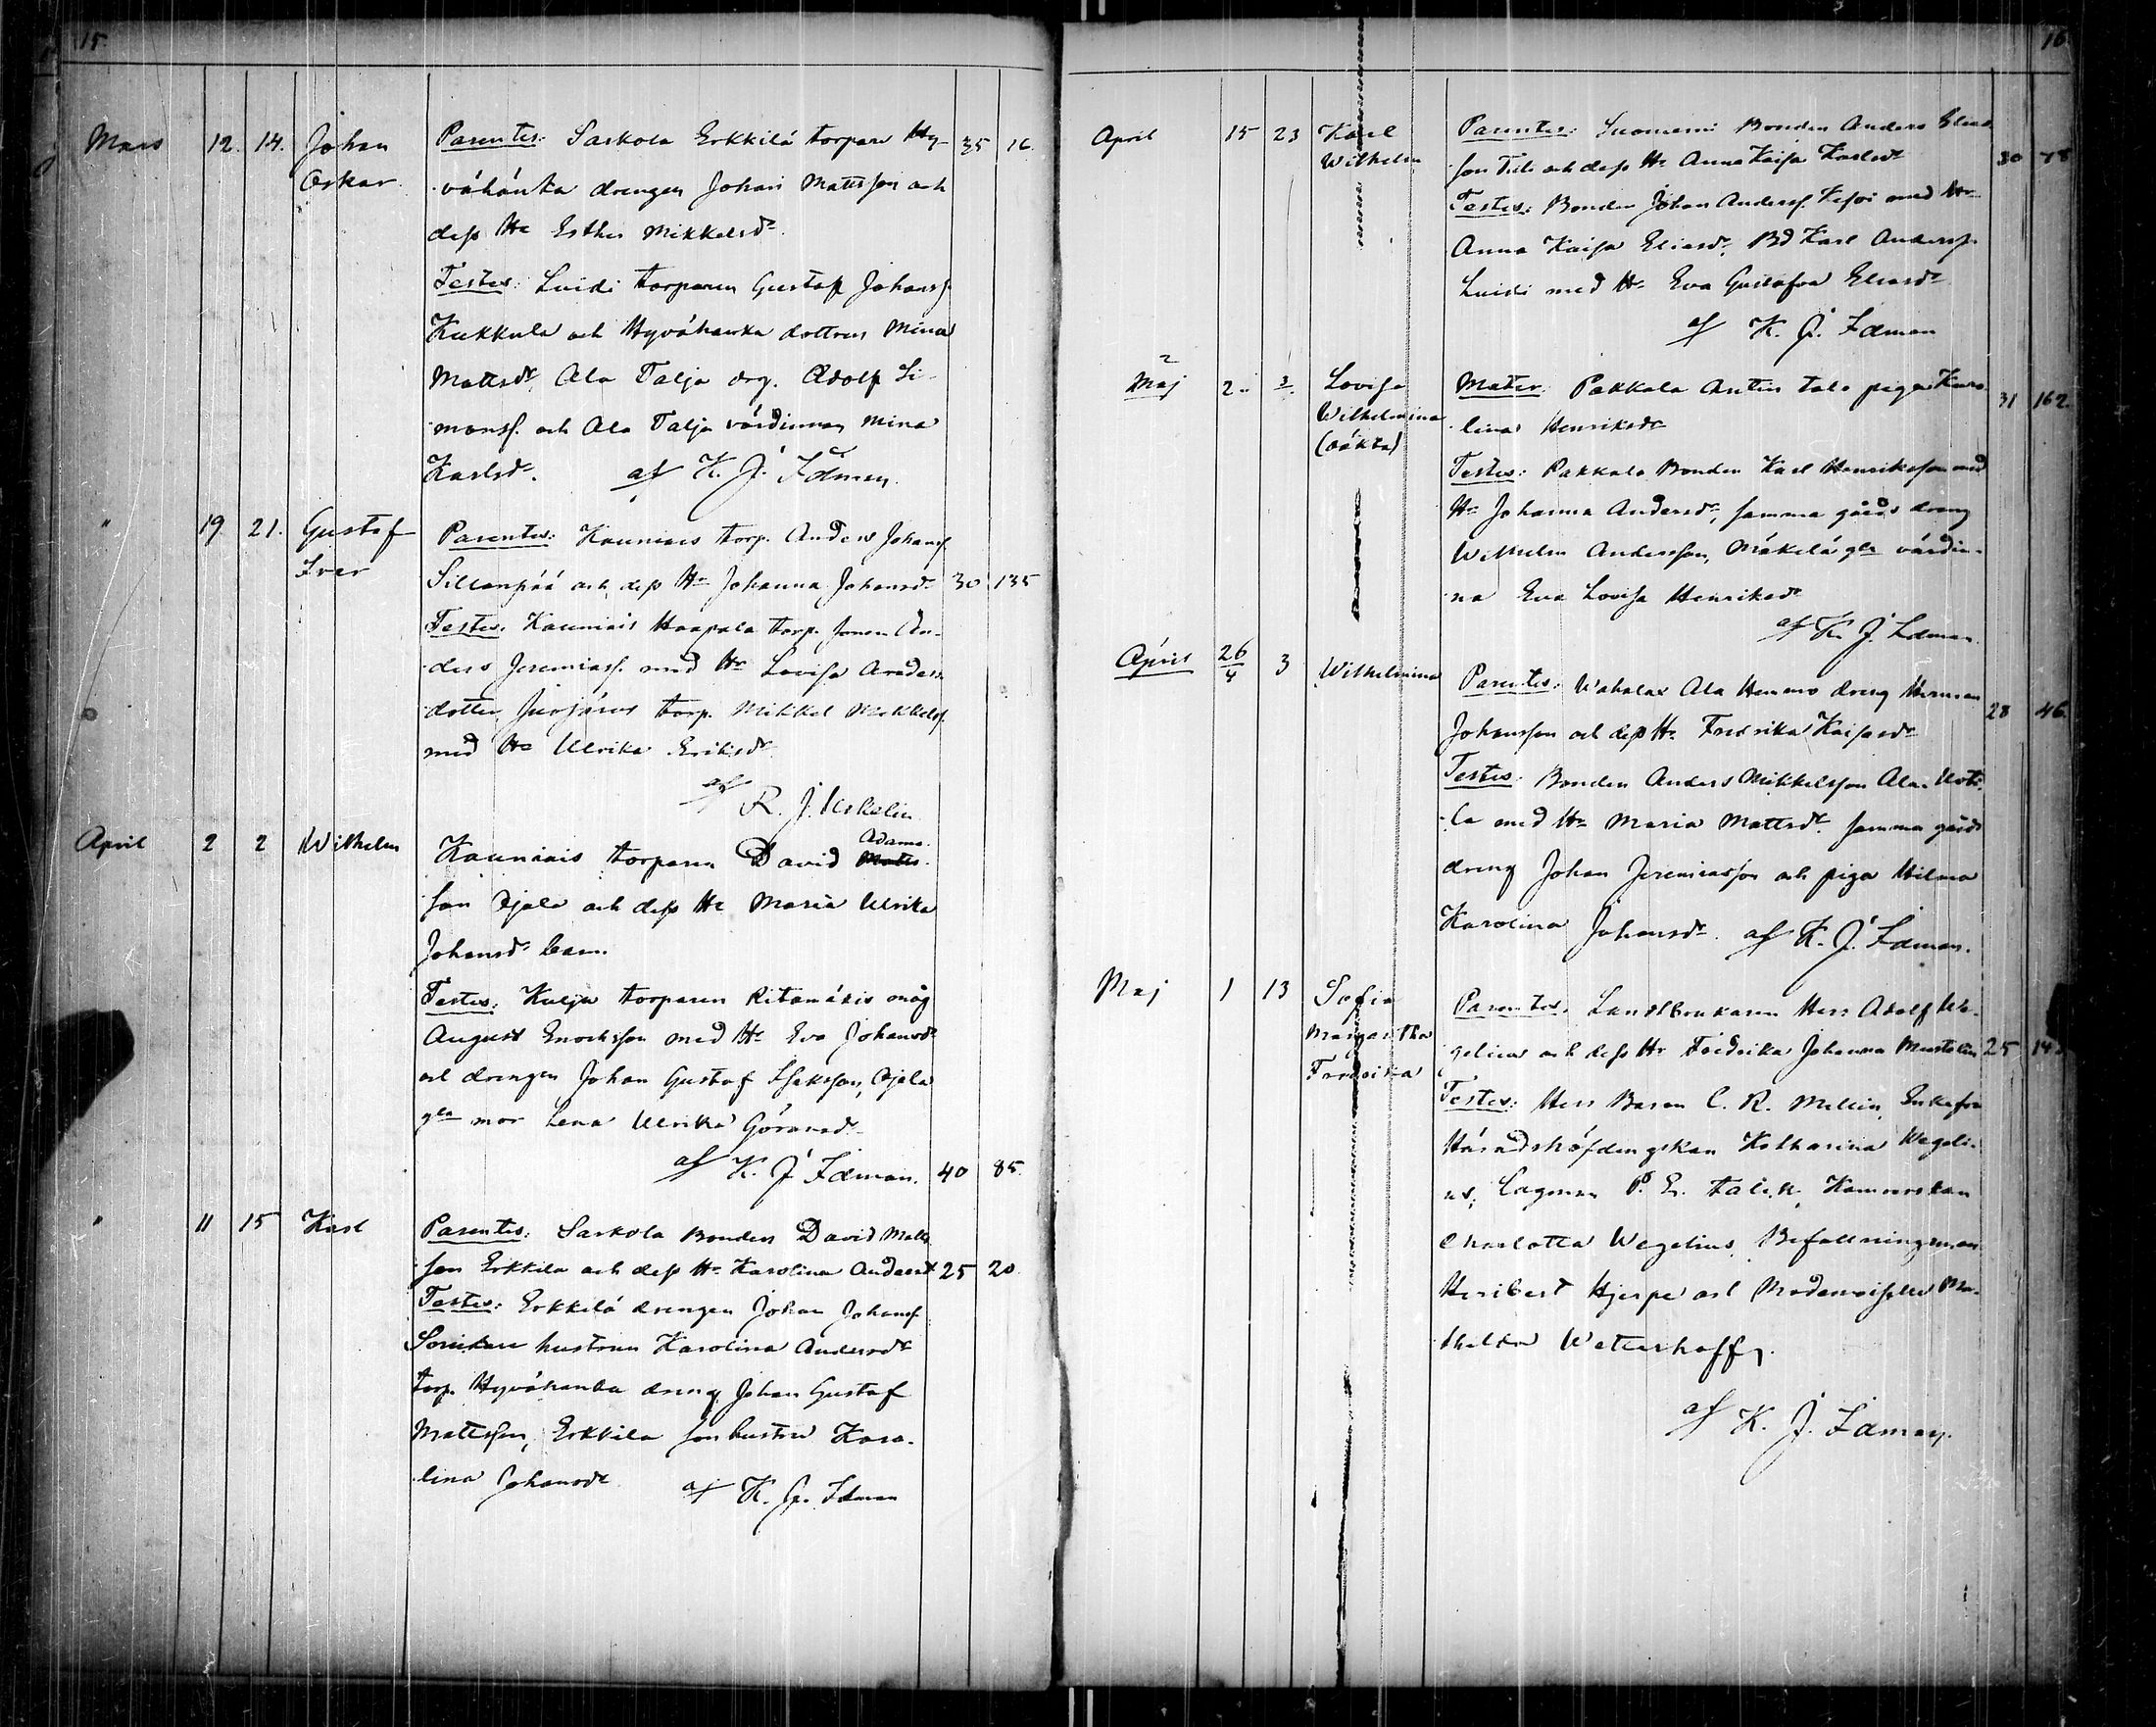 15.
Mars 12. 14. Johan Parentes: Saskola Erkkilä torpare Hy- 35 16.
Oskar. vähänka drengen Johan Mattsson och
dess Hu Esther Mikkelsdr
Testes: Luidi torparen Gustaf Johanss.
Kukkula och Hyvähanka dottren Mina
Mattsdr, Ala Talja drg. Adolf Si-
monss. och Ala Talja värdinnan Mina
Karlsdr. af K. J. Idman.
" 19 21. Gustaf Parentes: Kauniais torp. Anders Johanss.
Iver Sillanpää och dess Hu Johanna Johansdr 30 135
Testes. Kauniais Haapala torp. sonen An-
ders Jeremiass. med Hu Lovisa Anders
dotter, torp. Mikkel Mikkelss.
med Hu Ulrika Eriksdr
af R. J.
April 2 2 Wilhelm Kauniais torparen David Adams-
son Ojala och dess Hu Maria Ulrika
Johansdr barn.
Testes: Kulju torparen Ritamäkis måg
August Enochsson med Hu Eva Johansdr
och drengen Johan Gustaf Isaksson, Ojala
gla mor Lena Ulrika Göransdr
af K. J. Idman. 40 85.
" 11 15 Karl Parentes: Saskola Bonden David Matts
son Erkkila och dess Hu Karolina Andersd 25 20
Testes: Erkkilä drengen Johan Johanss.
hustrun Karolina Andersdr
torp. Hyvähanka dreng Johan Gustaf
Mattsson, Erkkila sonhustru Karo-
lina Johansdr af K. J. Idman
16
April 15 23 Karl Parentes: Suoniemi Bonden Anders Elias-
Wilhelm son och dess Hu Anna Kaisa Karlsdr 30 78
Testes: Bonden Johan Anderss. med Hu
Anna Kaisa Eliasdr, Bd Karl Anderss.
Luidi med Hu Eva Gustafva Eliasdr
af K. J. Idman
2
Maj 2.. 3 Lovisa Mater: Pakkala Anttis talo piga Karo- 31 162.
Wilhelmina lina Henriksdr
(oäkta)
Testes: Pakkala Bonden Karl Henriksson med
Hu Johanna Andersdr, samma gårds dreng
Wilhelm Andersson, Mäkelä gla värdin-
na Eva Lovisa Henriksdr
af K. J. Idman.
April 26/4 3 Wilhelmina Parentes: Wahalax Ala Hemmo dreng Herman 28 46.
Johansson och dess Hu Fredrika Kaisasdr
Testes: Bonden Anders Mikkelsson Ala-Uoti-
la med Hu Maria Mattsdr samma gårds
dreng Johan Jeremiasson och piga Hilma
Karolina Johansdr. af K. J. Idman.
Maj 1 13 Sofia Parentes. Landtbrukaren Herr Adolf We-
Margaretha gelius och dess Hu Fredrika Johanna 25
Fredrika
Testes: Herr Baron C. R. Mellin, Enkefru
Häradshöfdingskan Katharina Wegeli-
us, Lagman P. E. Kamrerskan
Charlotta Wegelius, Befallningsman
Heribert Hjerpe och Mademoiselle Ma-
thilda Wetterhoff.
af K. J. Idman.